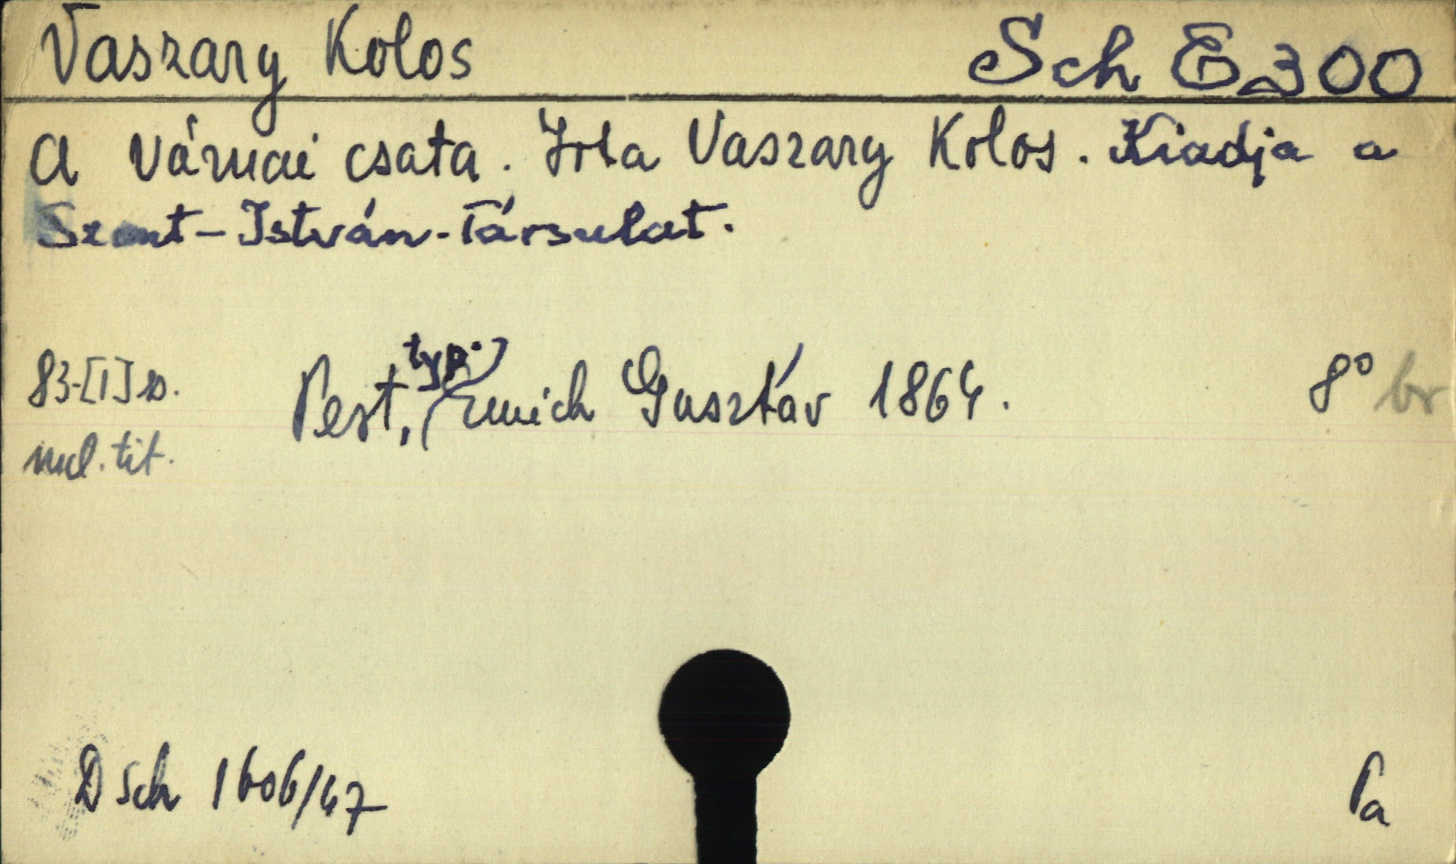 Vaszary Kolos Sch E 300
A várnai csata. Irta Vaszary Kolos. Kiadja a
Szent-István-Társulat.
83-[1] p. Pest, typ. Emich Gusztáv 1864. 8° br
mel. tit.
D Sch 1606/47 Pa